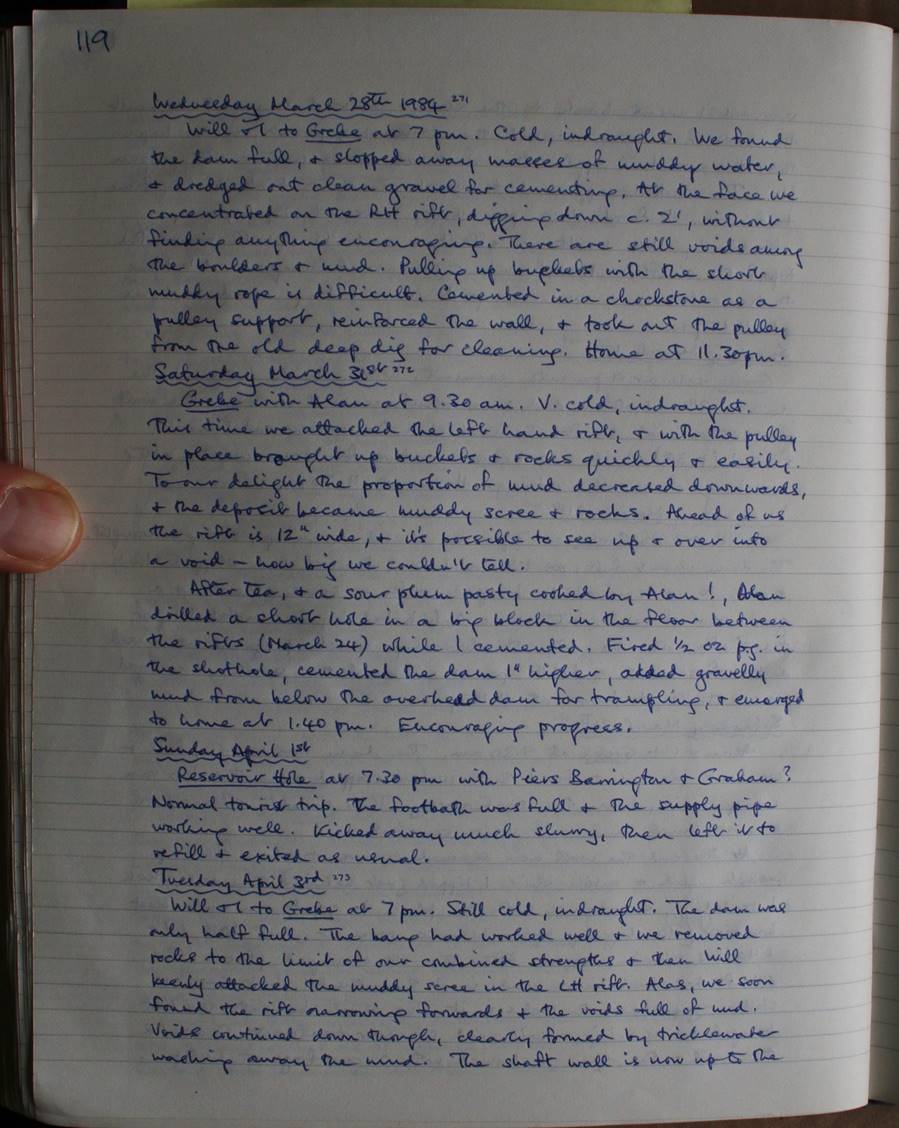 119
Wednesday March 28th 1984 271
Will & I to Grebe at 7 pm. Cold, indraught. We found
the dam full, & slopped away masses of muddy water,
& dredged out clean gravel for cementing. At the face we
concentrated on the RH rift, digging down c. 2', without
finding anything encouraging. There are still voids among
the boulders & mud. Pulling up buckets with the short
muddy rope is difficult. Cemented in a chockstone as a
pulley support, reinforced the wall, & took out the pulley
from the old deep dig for cleaning. Home at 11.30pm.
Saturday March 31st 272
Grebe with Alan at 9.30 am. V. cold, indraught.
This time we attacked the left hand rift, & with the pulley
in place brought up buckets & rocks quickly & easily.
To our delight the proportion of mud decreased downwards,
& the deposit became muddy scree & rocks. Ahead of us
the rift is 12" wide, & it's possible to see up & over into
a void – how big we couldn't tell.
After tea, & a sour plum pasty cooked by Alan!, Alan
drilled a short hole in a big block in the floor between
the rifts (March 24) while I cemented. Fired ½ oz p.g. in
the shothole, cemented the dam 1" higher, added gravelly
mud from below the overhead dam for trampling, & emerged
to home at 1.40 pm. Encouraging progress.
Sunday April 1st
Reservoir Hole at 7.30 pm with Piers Barrington & Graham?
Normal tourist trip. The footbath was full & the supply pipe
working well. Kicked away much slurry, then left it to
refill & exited as usual.
Tuesday April 3rd 273
Will & I to Grebe at 7 pm. Still cold, indraught. The dam was
only half full. The bang had worked well & we removed
rocks to the limit of our combined strengths & then Will
keenly attacked the muddy scree in the LH rift. Alas, we soon
found the rift narrowing forwards & the voids full of mud.
Voids continued down though, clearly formed by tricklewater
washing away the mud. The shaft wall is now up to the